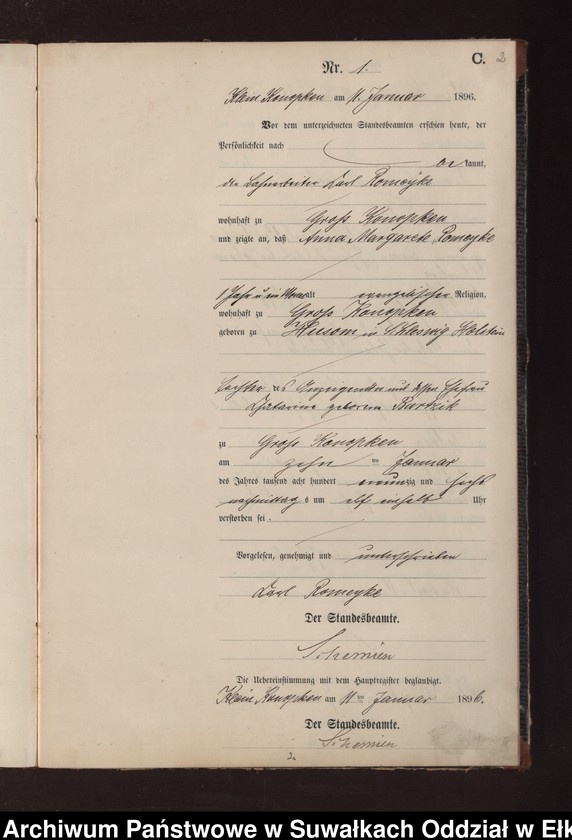 C. 2
Nr. 1.
Klein Konopken am 11. Januar 1896.
Vor dem unterzeichneten Standesbeamten erschien heute, der
Persönlichkeit nach
kannt,
Karl Romeyke
wohnhaft zu Groß Konopken
und zeigte an, daß Anna Margarete Romeyke
1 Jahr alt evangelischer Religion,
wohnhaft zu Groß Konopken
geboren zu Husom in Schleswig Holstein
Tochter des Anzeigenden und dessen Ehefrau
Katarine geborene Bartzik
zu Groß Konopken
am zehn ten Januar
des Jahres tausend acht hundert neunzig und sechs
nachmittags um elf einhalb Uhr
verstorben sei.
Vorgelesen, genehmigt und unterschrieben
Karl Romeyke
Der Standesbeamte.
Schemien
Die Uebereinstimmung mit dem Hauptregister beglaubigt.
Klein Konopken am 11ten Januar 1896.
Der Standesbeamte.
Schemien
Archiwum Państwowe w Suwałkach Oddział w Ełk